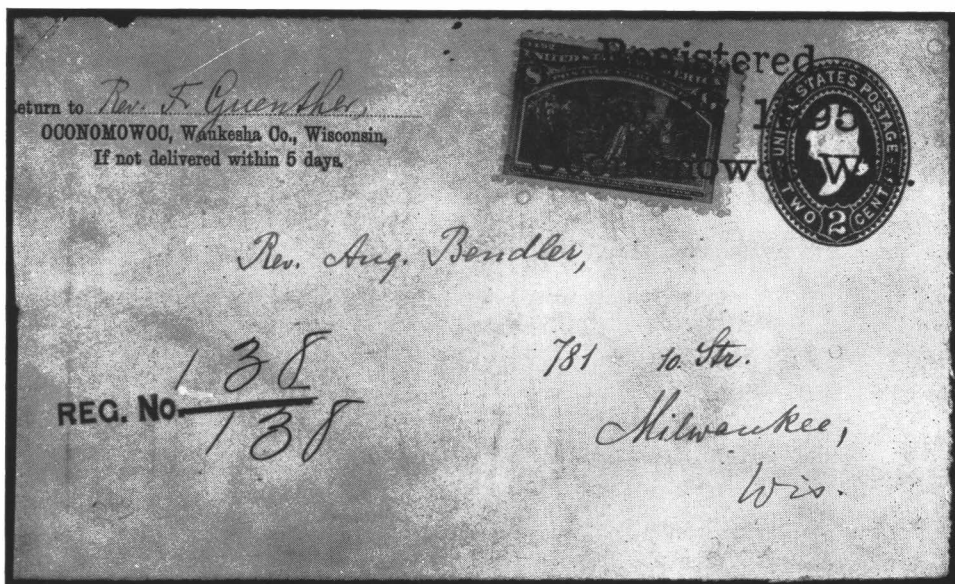 eturn to Rev. F. Guenther,
OCONOMOWOC, Waukesha Co., Wisconsin,
If not delivered within 5 days.
Registered
1895
UNITED STATES POSTAGE
TWO 2 CENTS
Rev. Aug. Bendler,
781 10 Str.
Milwaukee,
Wis.
138
REG. No.
138